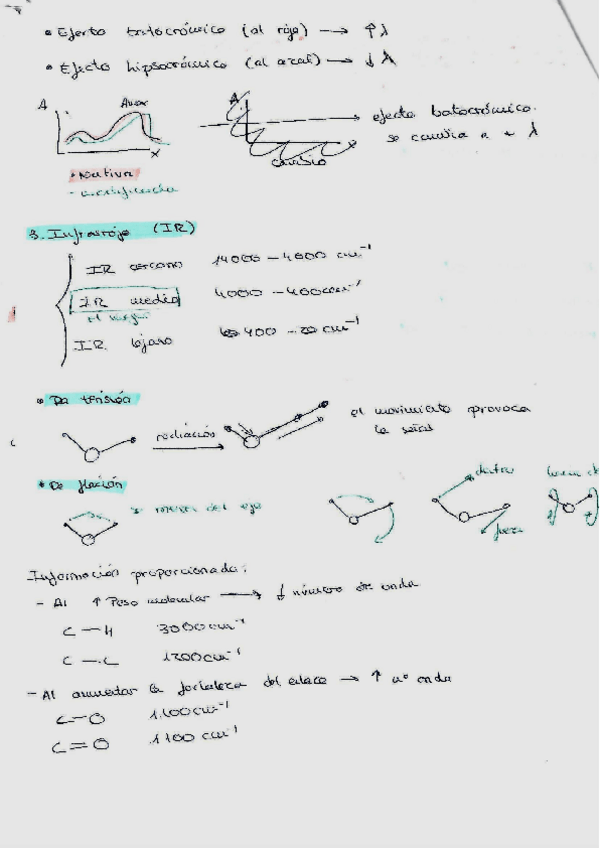 • Efecto batocrómico (al rojo) → ↑ λ
• Efecto hipsocrómico (al azul) → ↓ λ
A
A
efecto batocrómico.
se cambia a + λ
cambio
• Nativa
3. Infrarrojo (IR)
IR cercano 14000 – 4000 cm⁻¹
IR medio 4000 – 400 cm⁻¹
IR lejano 400 – 20 cm⁻¹
• De tensión
radiación
el movimiento provoca
la señal
• De flexión
dentro
fuera
Información proporcionada:
– Al ↑ Peso molecular → ↓ número de onda
C – H 3000 cm⁻¹
C – C 1200 cm⁻¹
– Al aumentar la fortaleza del enlace → ↑ nº onda
C – O 1.100 cm⁻¹
C = O 1100 cm⁻¹